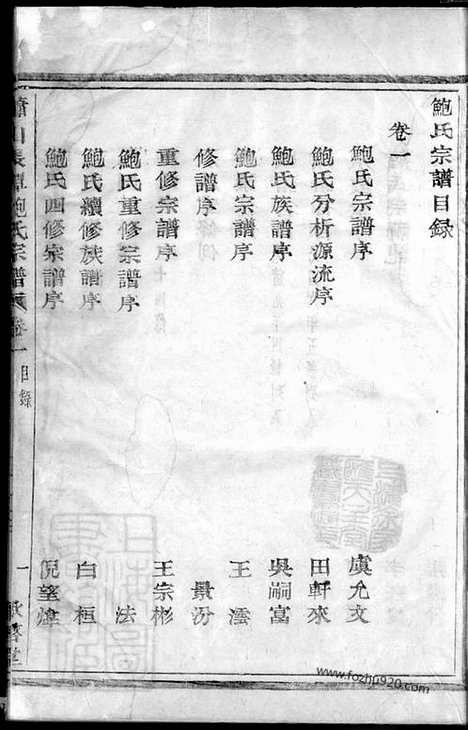 鮑氏宗譜目録
卷一
鮑氏宗譜序 虞允文
鮑氏分析源流序 田軒來
鮑氏族譜序 吳嗣富
鮑氏宗譜序 王澐
修譜序 景汾
重修宗譜序 王宗彬
鮑氏重修宗譜序 法
鮑氏續修族譜序 白桓
鮑氏四修宗譜序 倪望煒
蕭山長潭鮑氏宗譜 卷一 目錄 一
www.fozhu920.com